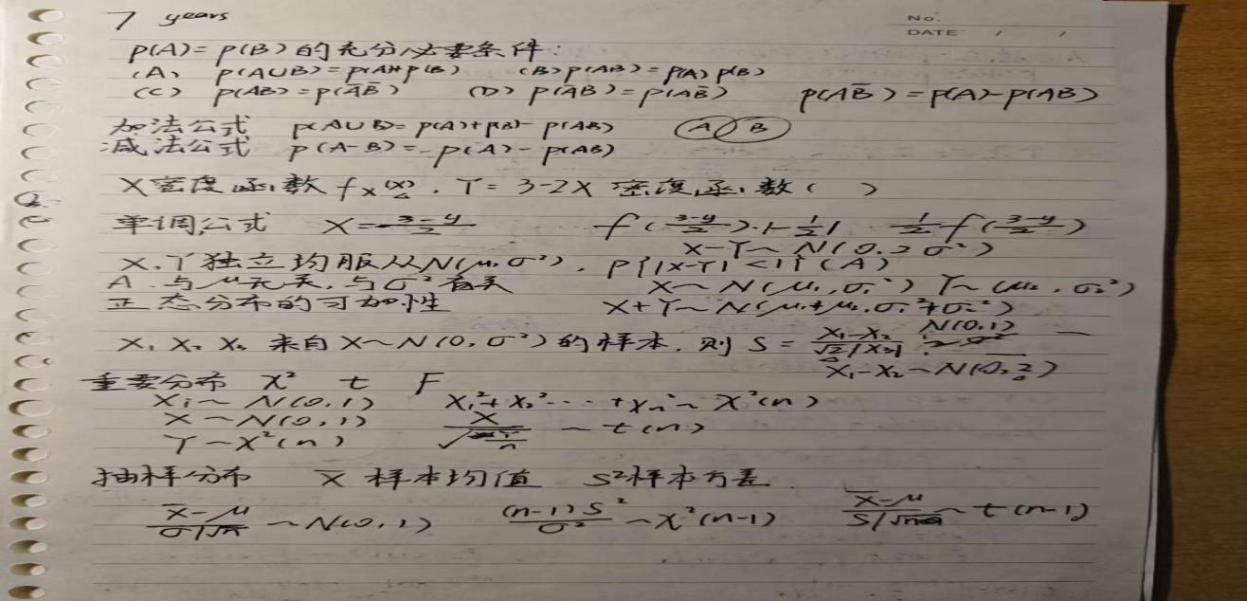 7 years
No.
DATE / /
P(A)=P(B)的充分必要条件:
(A) P(A∪B)=P(A)+P(B) (B) P(AB)=P(A)P(B)
(C) P(AB)=P(A̅B̅) (D) P(A̅B)=P(AB̅) P(AB̅)=P(A)-P(AB)
加法公式 P(A∪B)=P(A)+P(B)-P(AB) A B
减法公式 P(A-B)=P(A)-P(AB)
X密度函数 fX(x). Y=3-2X 密度函数( )
单调公式 X=(3-y)/2 f((3-y)/2)·|-1/2| 1/2 f((3-y)/2)
X-Y~N(0,2σ²)
X.Y独立均服从N(μ,σ²), P{|X-Y|<1}(A)
A.与μ无关,与σ²有关 X~N(μ₁,σ₁²) Y~(μ₂,σ₂²)
正态分布的可加性 X+Y~N(μ₁+μ₂,σ₁²+σ₂²)
X₁ X₂ X₃ 来自X~N(0,σ²)的样本.则 S=(X₁-X₂)/(√2|X₃|) N(0,1)
X₁-X₂~N(0,2)
重要分布 X² t F
Xi~N(0,1) X₁²+X₂²···+Xn²~X²(n)
X~N(0,1) X/√(Y/n) ~t(n)
Y~X²(n)
抽样分布 X̅ 样本均值 S²样本方差
(X̅-μ)/(σ/√n) ~N(0,1) (n-1)S²/σ² ~X²(n-1) (X̅-μ)/(S/√n) ~t(n-1)